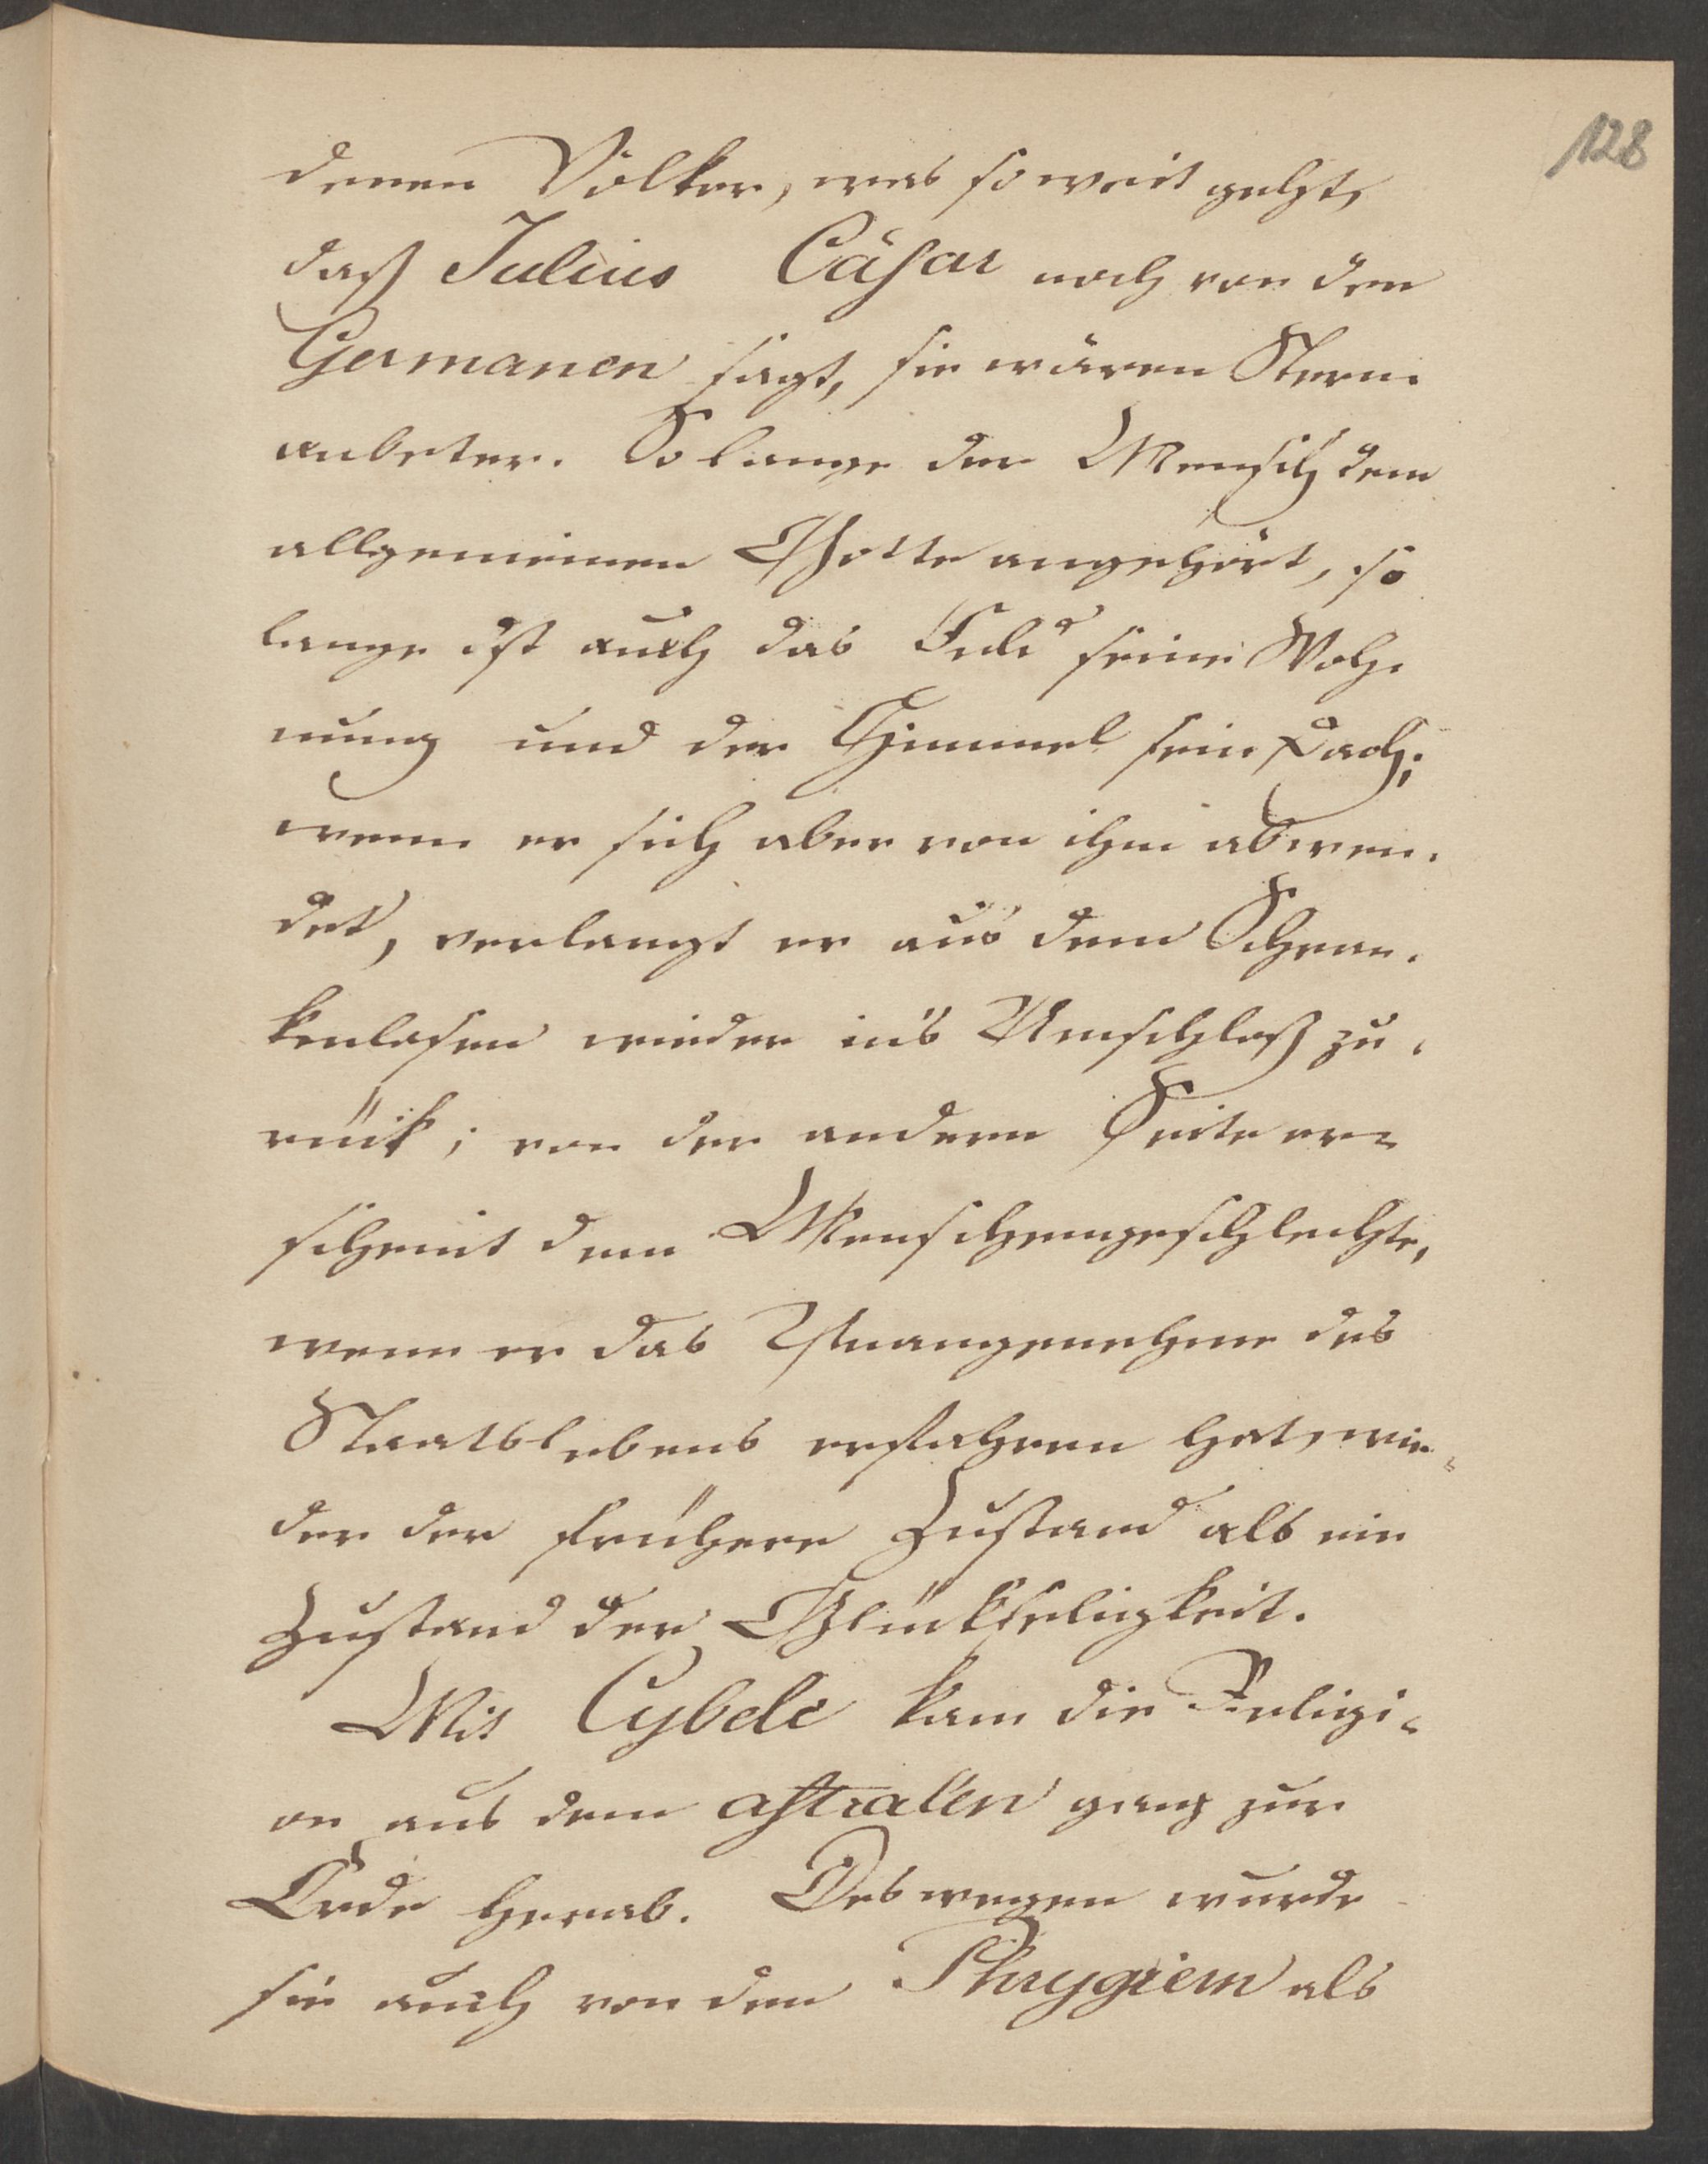 128
denen Völker, was so weit geht,
daß Julius Cäsar noch von den
Germanen sagt, sie wären Stern-
anbeter. So lange der Mensch dem
allgemeinen Gotte angehört, so
lange ist auch das Feld seine Woh-
nung und der Himmel sein Dach;
wenn er sich aber von ihm abwen-
det, verlangt er aus dem Schran-
kenlosen wieder in's Umschloß zu-
rück; von der andern Seite er-
scheint dem Menschengeschlechte,
wenn er das Unangenehme des
Staatslebens erfahren hat, wie-
der der frühere Zustand als ein
Zustand der Glückseligkeit.
Mit Cybele kam die Religi-
on aus dem astralen ganz zur
Erde herab. Deswegen wurde
sie auch von den Phrygiern als